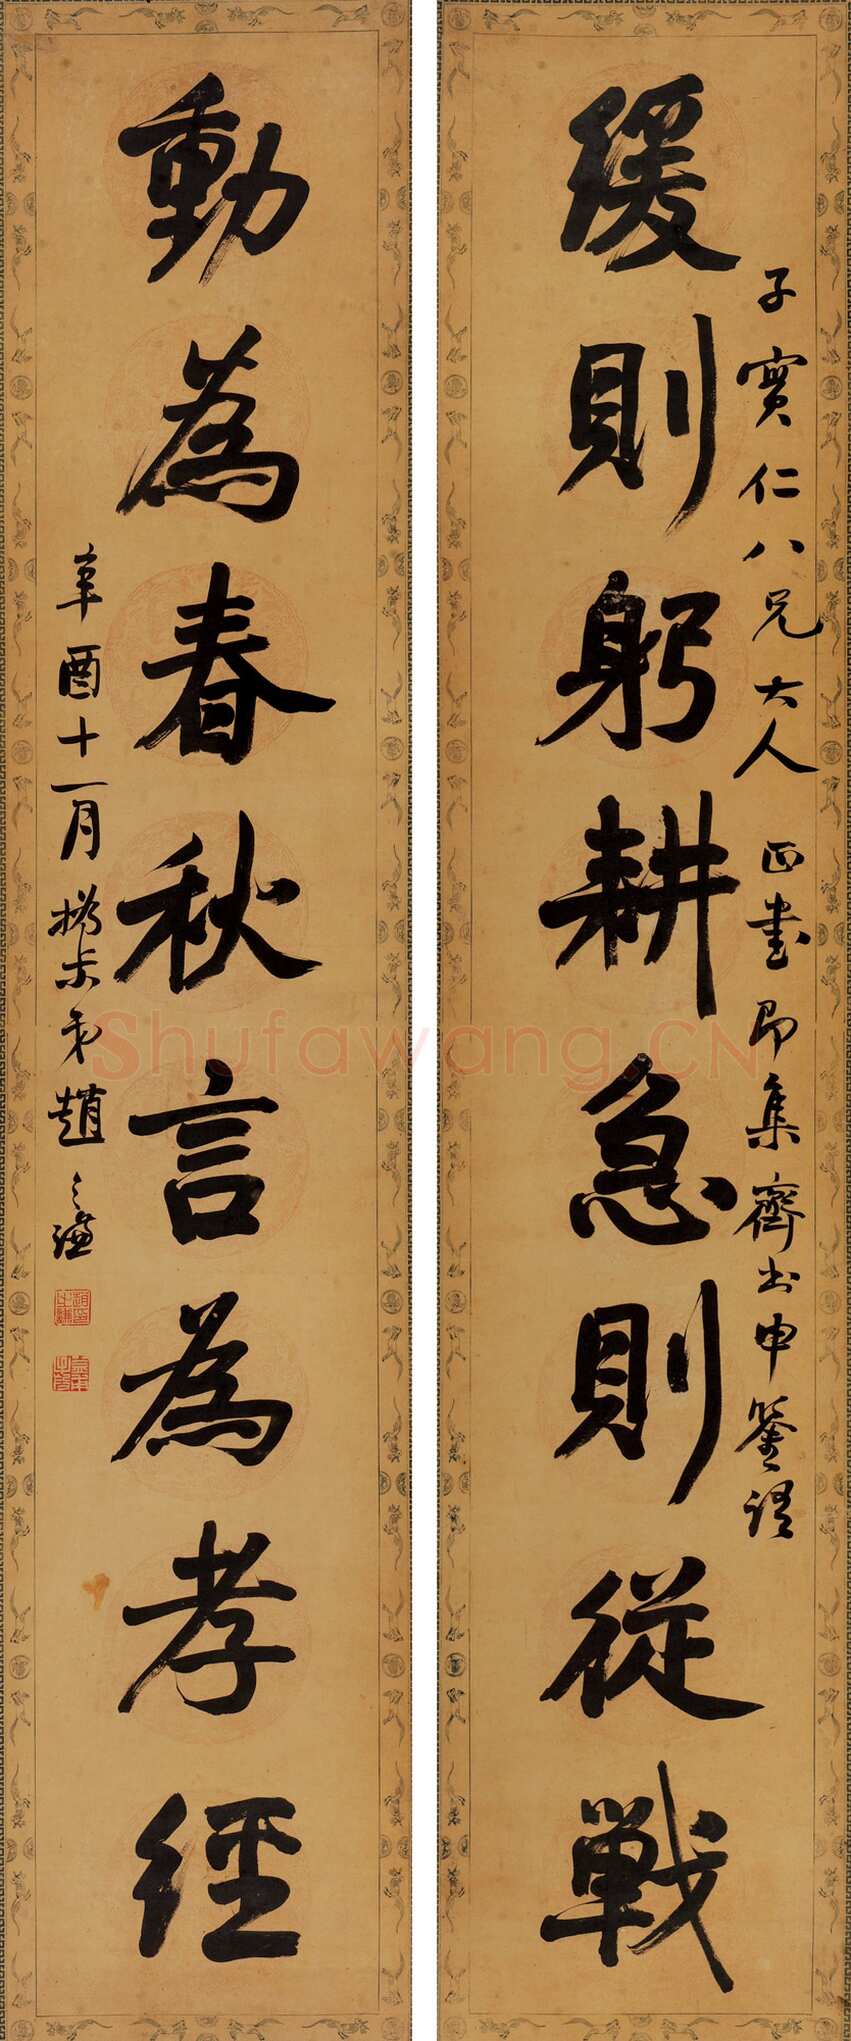 緩則躬耕急則從戰
子實仁八兄大人正書即集齊書申鑒語
動為春秋言為孝經
辛酉十一月撝尗弟趙之謙
Shufawang.CN